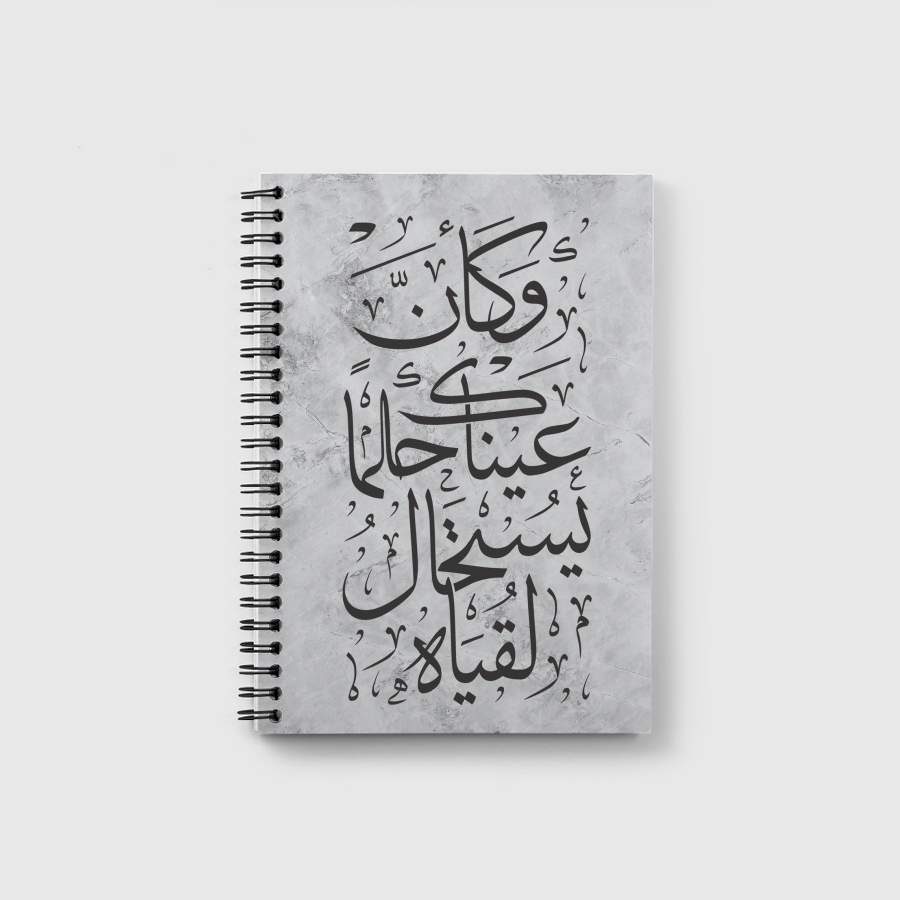 وَكَأنَّ
عيناك حالمًا
يُستحَال
لُقياه